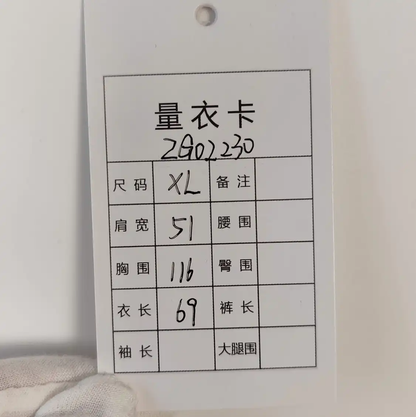 量衣卡
ZG02230
尺码 XL 备注
肩宽 51 腰围
胸围 116 臀围
衣长 69 裤长
袖长 大腿围